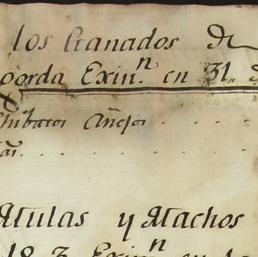 los Ganados de
oorda Exin.ⁿ en 31.
Chibatos Añejos . . . .
Mulas y Machos
Exin.ⁿ en